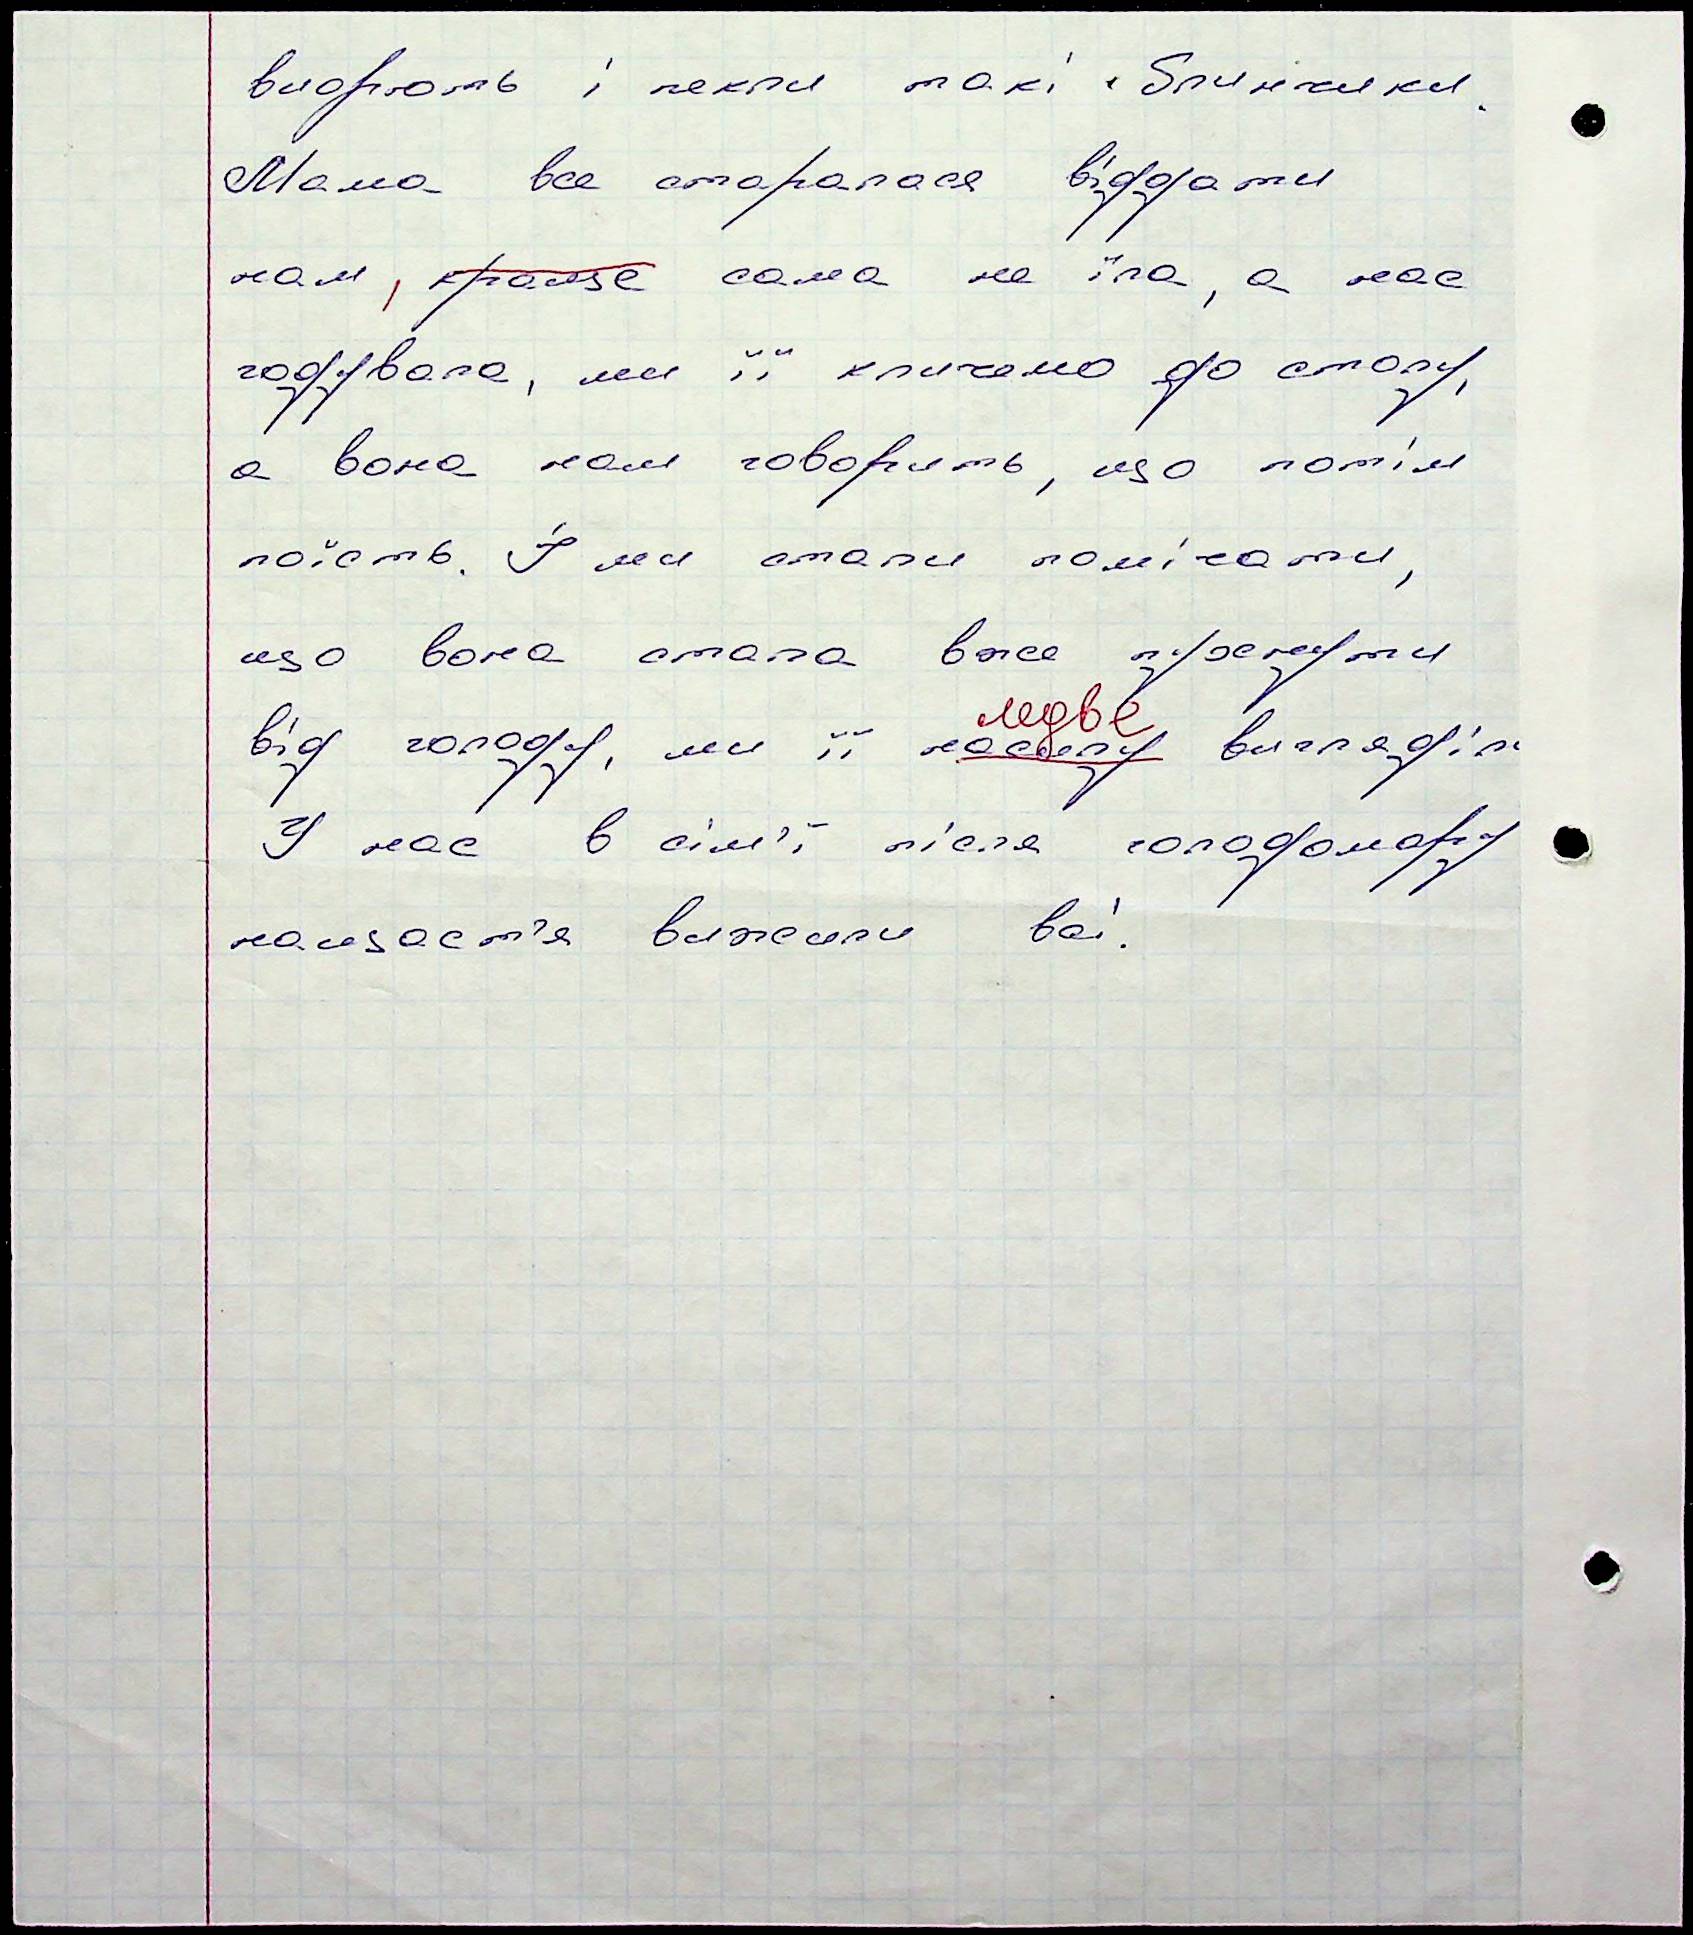 видрють і пекли такі блинчики.
Мама все старалася віддати
нам, краще сама не їла, а нас
годувала, ми її кличемо до столу,
а вона нам говорить, що потім
поїсть. І ми стали помічати,
що вона стала вже пухнути
ледве
від голоду, ми її насилу вигляділи
У нас в сім'ї після голодомору
нащаст'я вижили всі.